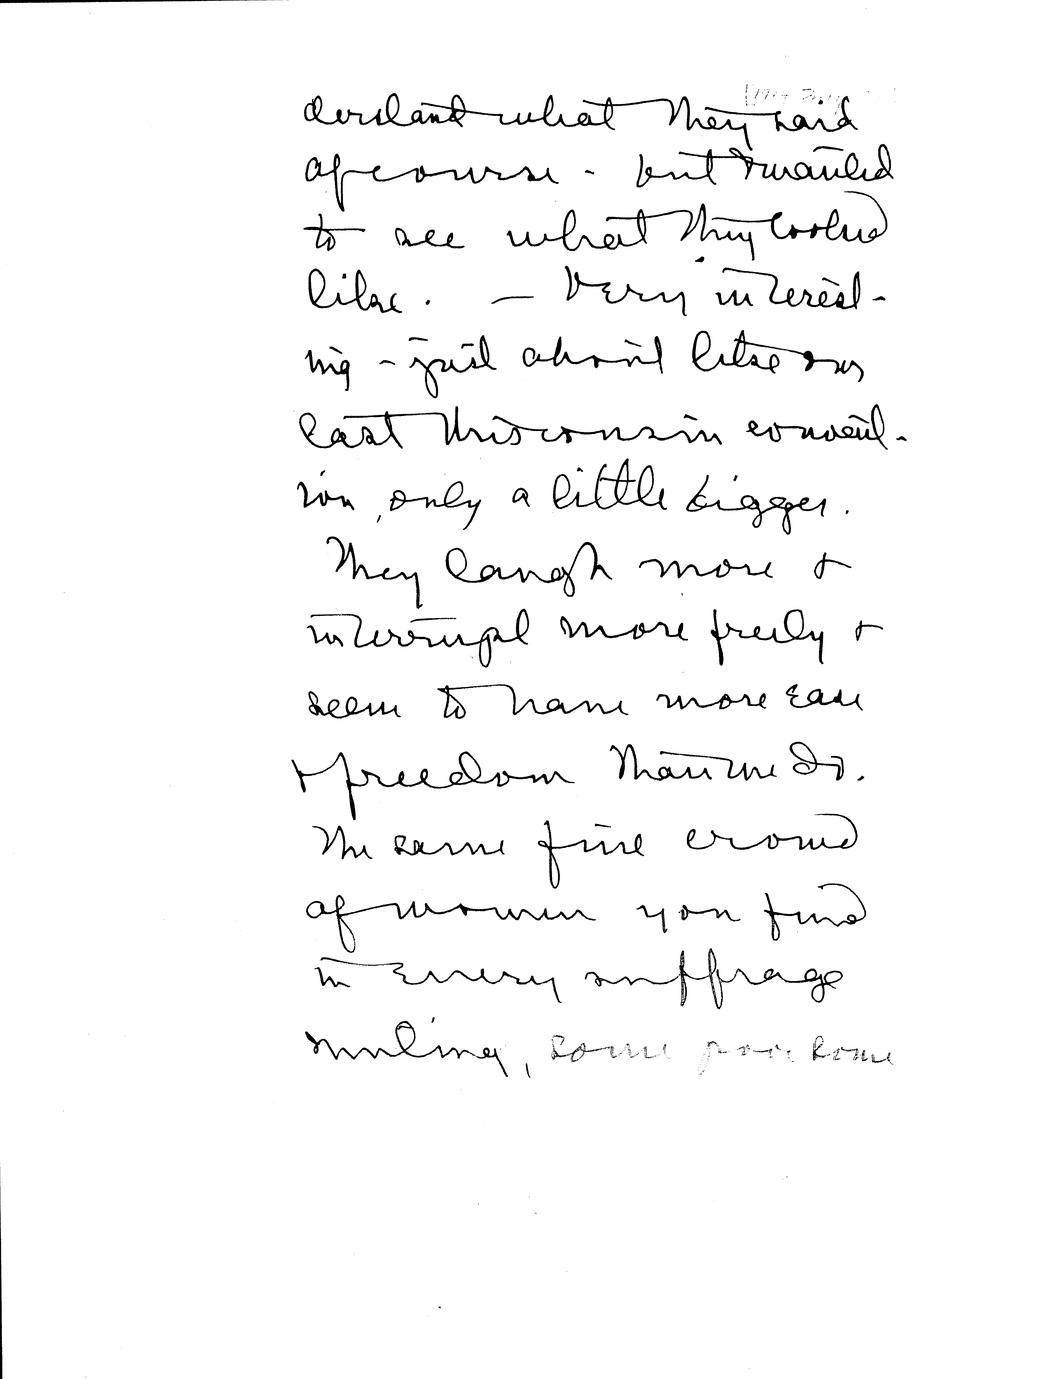 derstand what they said
of course - but I wanted
to see what they looked
like. — Very interest-
ing - just about like our
last Wisconsin conven-
tion, only a little bigger.
They laugh more &
interrupt more freely &
seem to have more ease
& freedom than we do.
The same fine crowd
of women you find
in every suffrage
meeting, some poor some